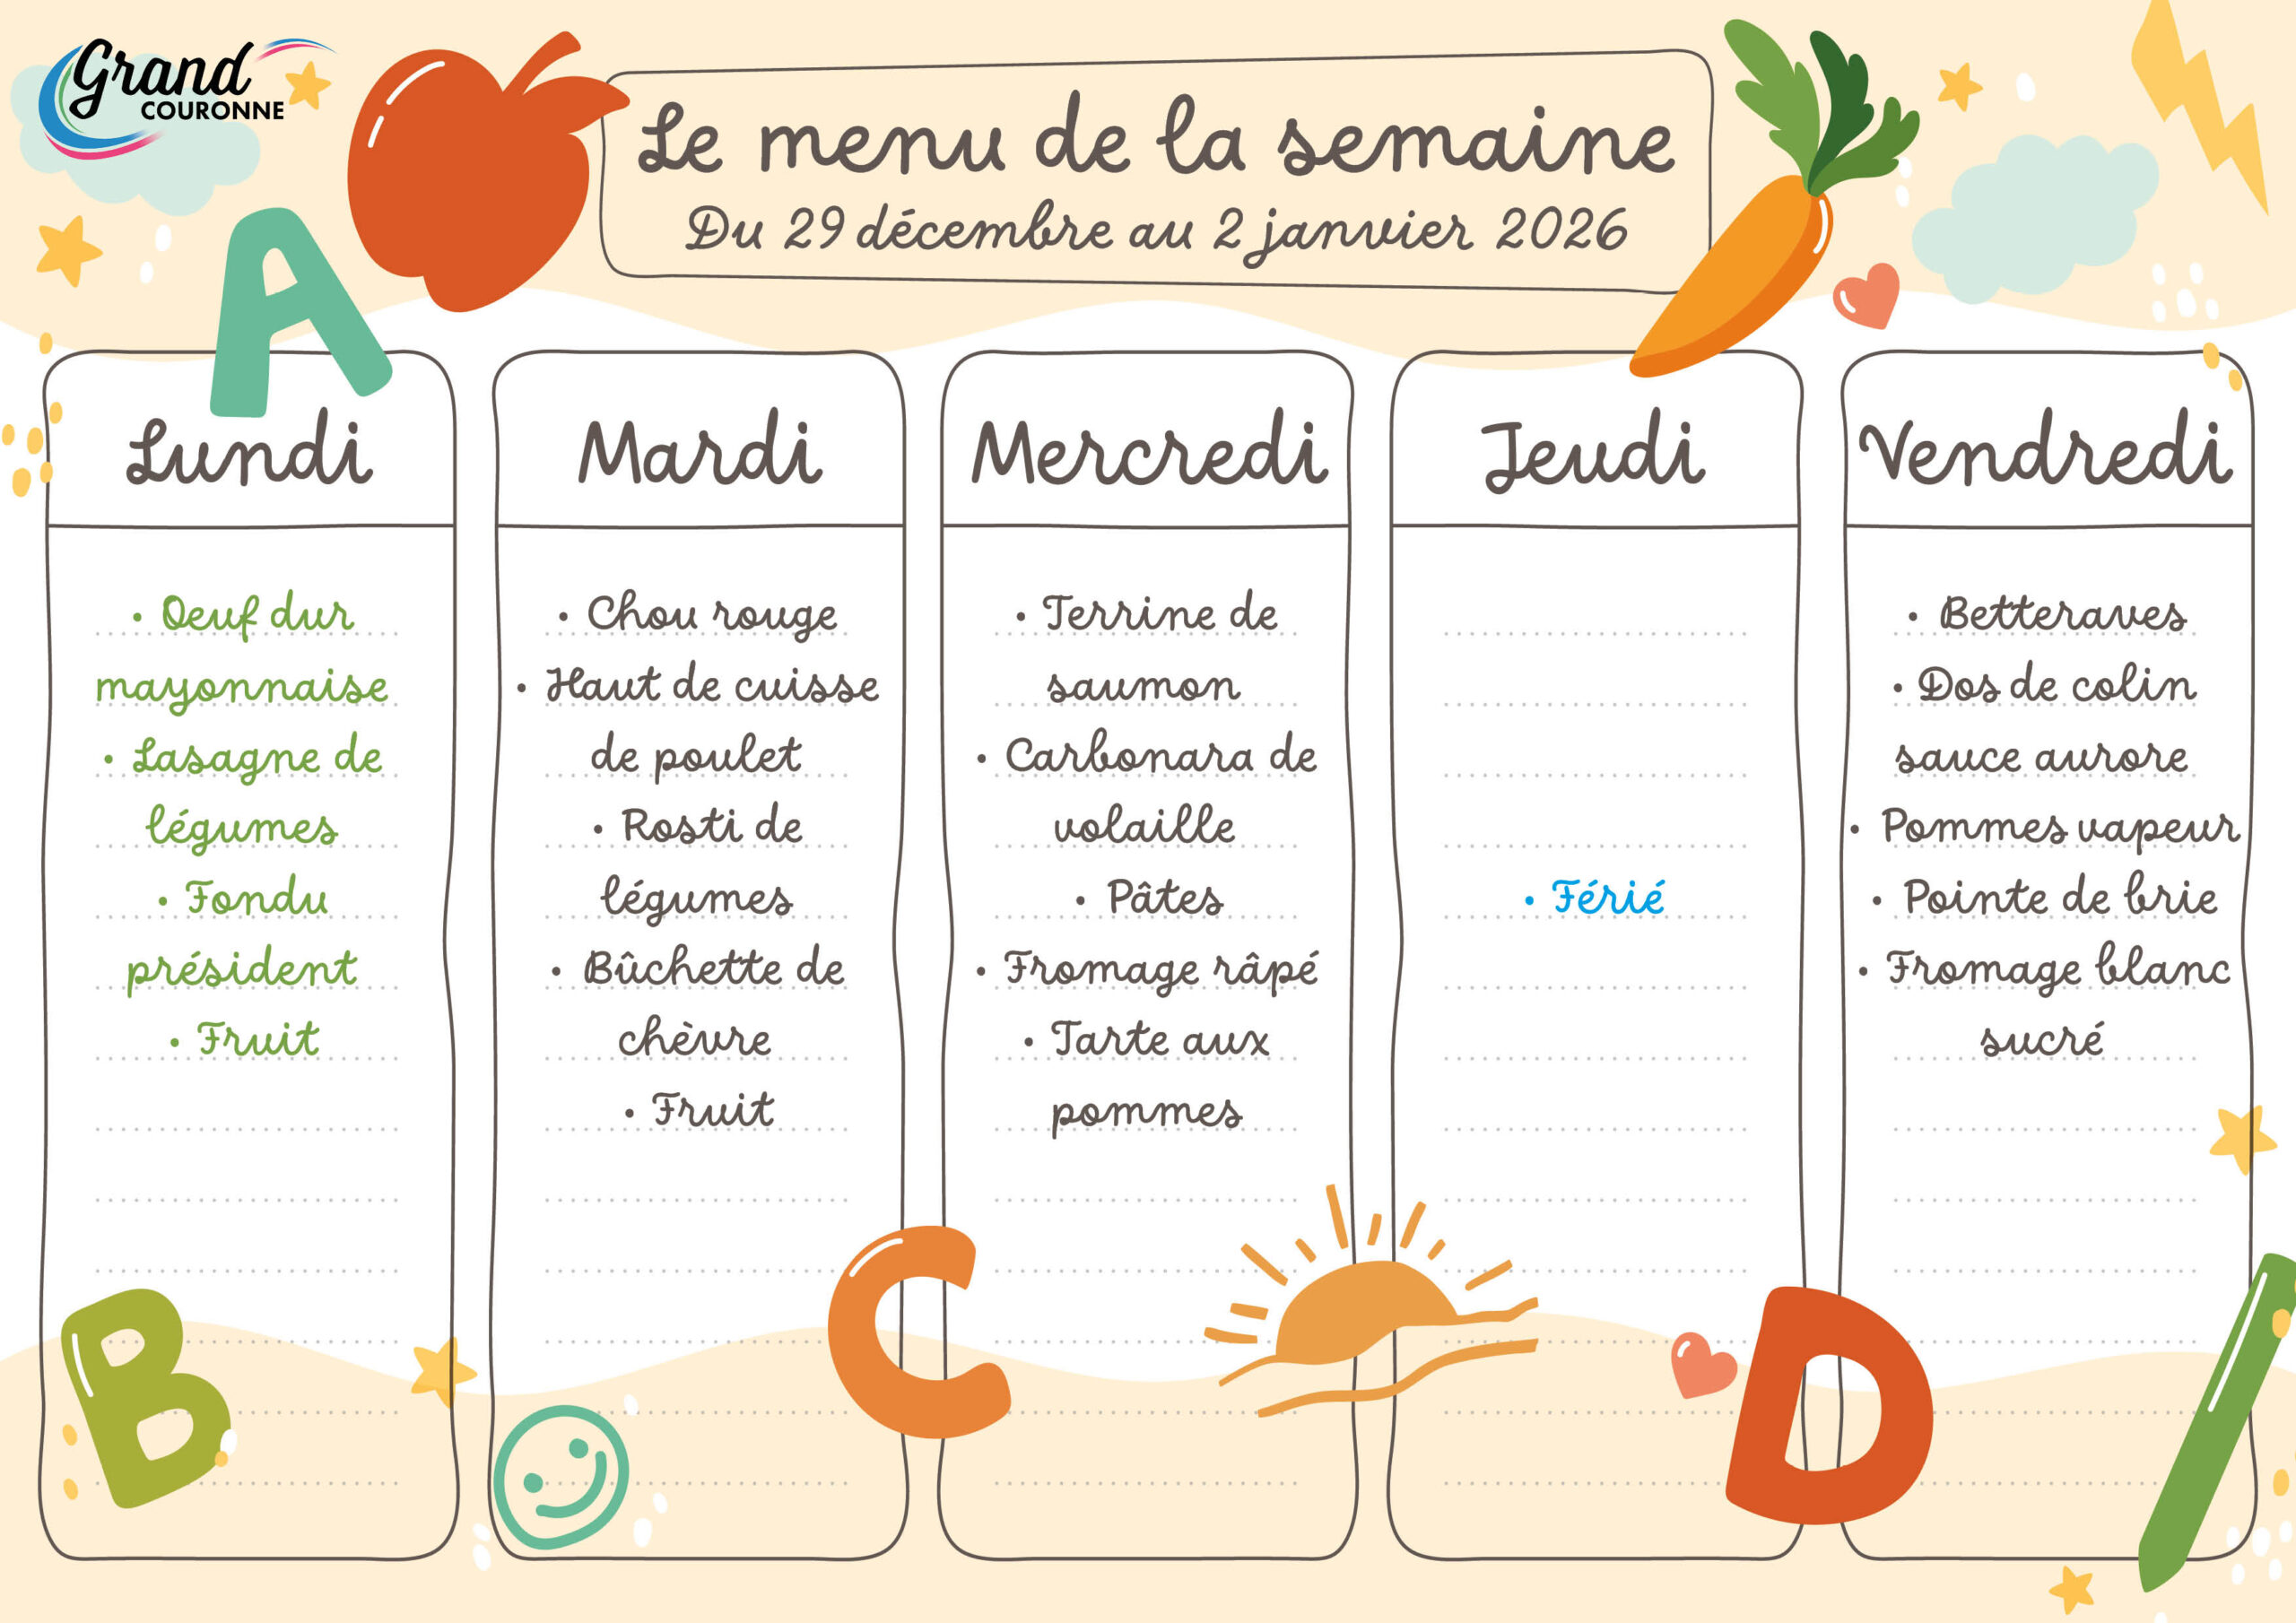 Grand
COURONNE
Le menu de la semaine
Du 29 décembre au 2 janvier 2026
A
Lundi
• Oeuf dur
mayonnaise
• Lasagne de
légumes
• Fondu
président
• Fruit
Mardi
• Chou rouge
• Haut de cuisse
de poulet
• Rosti de
légumes
• Bûchette de
chèvre
• Fruit
Mercredi
• Terrine de
saumon
• Carbonara de
volaille
• Pâtes
• Fromage râpé
• Tarte aux
pommes
Jeudi
• Férié
Vendredi
• Betteraves
• Dos de colin
sauce aurore
• Pommes vapeur
• Pointe de brie
• Fromage blanc
sucré
B
C
D